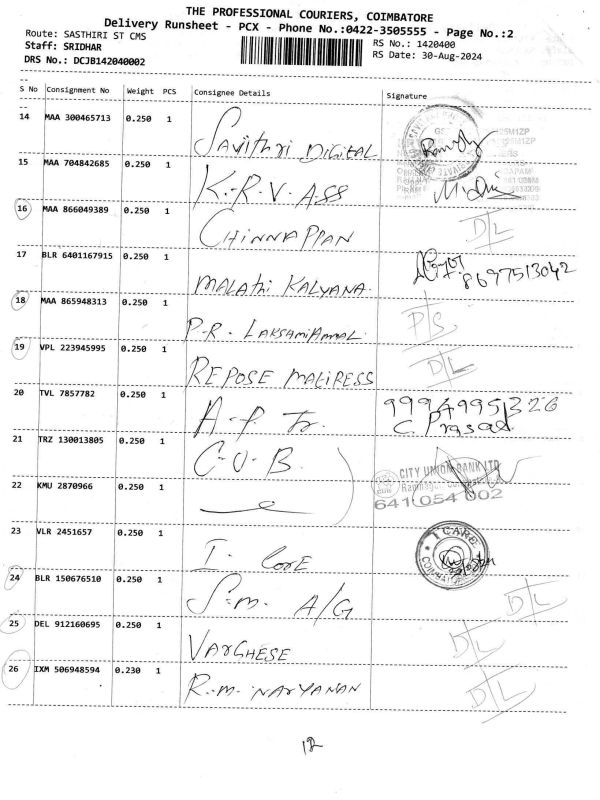 THE PROFESSIONAL COURIERS, COIMBATORE
Delivery Runsheet - PCX - Phone No.:0422-3505555 - Page No.:2
Route: SASTHIRI ST CMS
RS No.: 1420400
Staff: SRIDHAR
RS Date: 30-Aug-2024
DRS No.: DCJB142040002
S No Consignment No Weight PCS Consignee Details Signature
14 MAA 300465713 0.250 1 SAVITHRI DIGITAL
15 MAA 704842685 0.250 1 K.R.V. ASS
16 MAA 866049389 0.250 1 CHINNAPPAN D/L
17 BLR 6401167915 0.250 1 MALATHI KALYANA. 8697513042
18 MAA 865948313 0.250 1 P.R. LAKSHMIAMMAL. P/S
19 VPL 223945995 0.250 1 REPOSE MATIRESS D/L
20 TVL 7857782 0.250 1 A.P. Tr. 9994995326
C. Prasad
21 TRZ 130013805 0.250 1 C.U.B.
CITY UNION BANK LTD
641 054 002
22 KMU 2870966 0.250 1
23 VLR 2451657 0.250 1 I. CARE
I CARE
24 BLR 150676510 0.250 1 S.M. A/G D/L
25 DEL 912160695 0.250 1 VARGHESE D/L
26 IXM 506948594 0.230 1 R.M. NARYANAN D/L
12